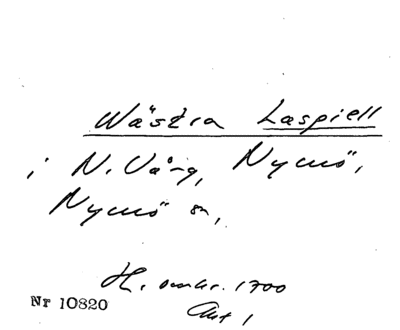 Wästra Laspiell
i N. Vång, Nymö,
Nymö sn,
H. omkr. 1700
Akt 1
Nr 10820